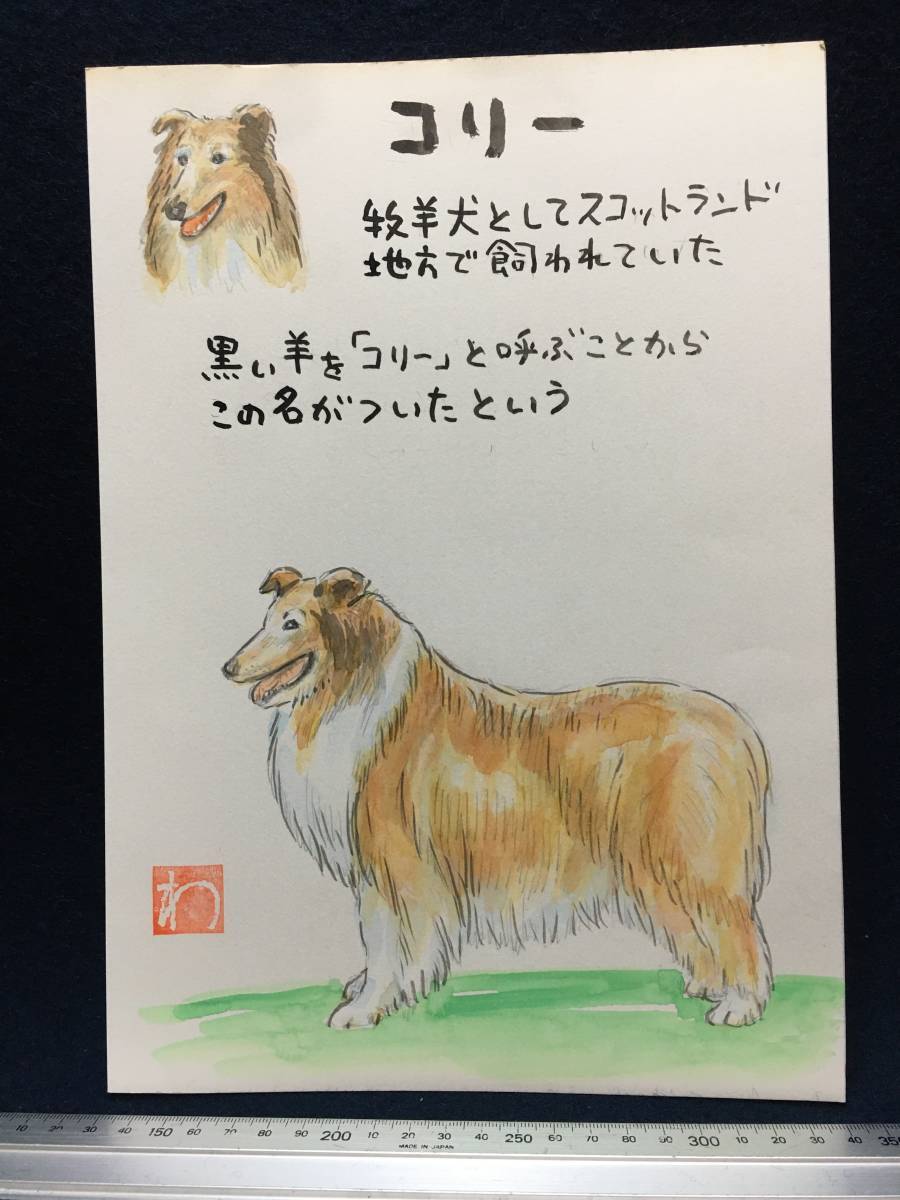 コリー
牧羊犬としてスコットランド
地方で飼われていた
黒い羊を「コリー」と呼ぶことから
この名がついたという
わ
10 20 30 40 150 60 70 80 90 200 10 20 30 40 250 60 70 80 90 300 10 20 30 40 350
MADE IN JAPAN